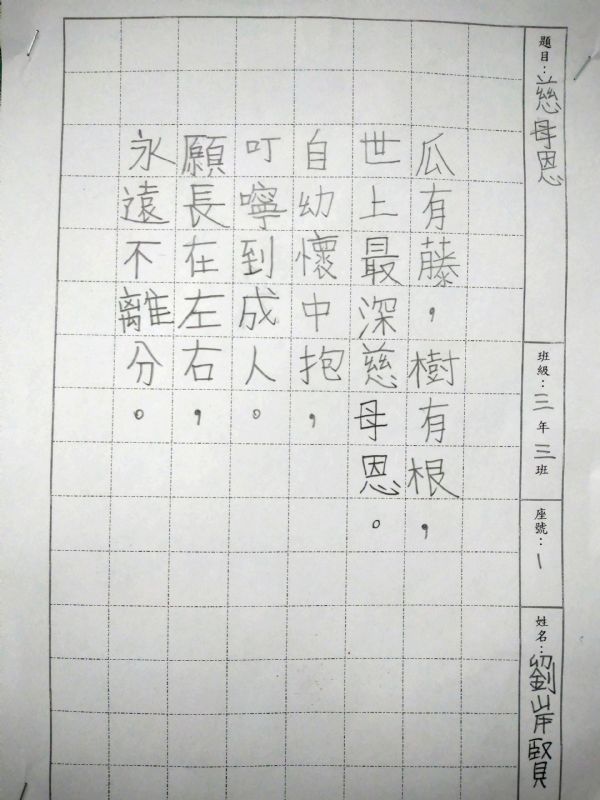 題目：慈母恩
班級：三年三班
座號：1
姓名：劉岸賢
瓜有藤，樹有根，
世上最深慈母恩。
自幼懷中抱，
叮嚀到成人。
願長在左右，
永遠不離分。